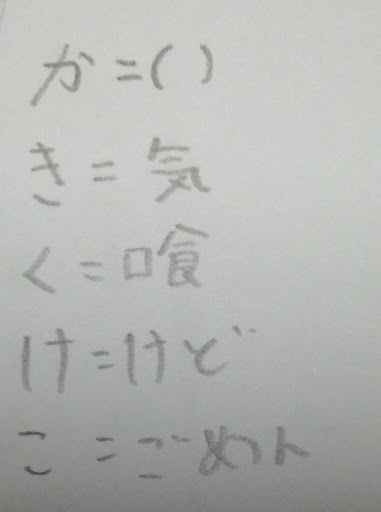 か=( )
き=気
く=喰
け=けど
こ=ごめん